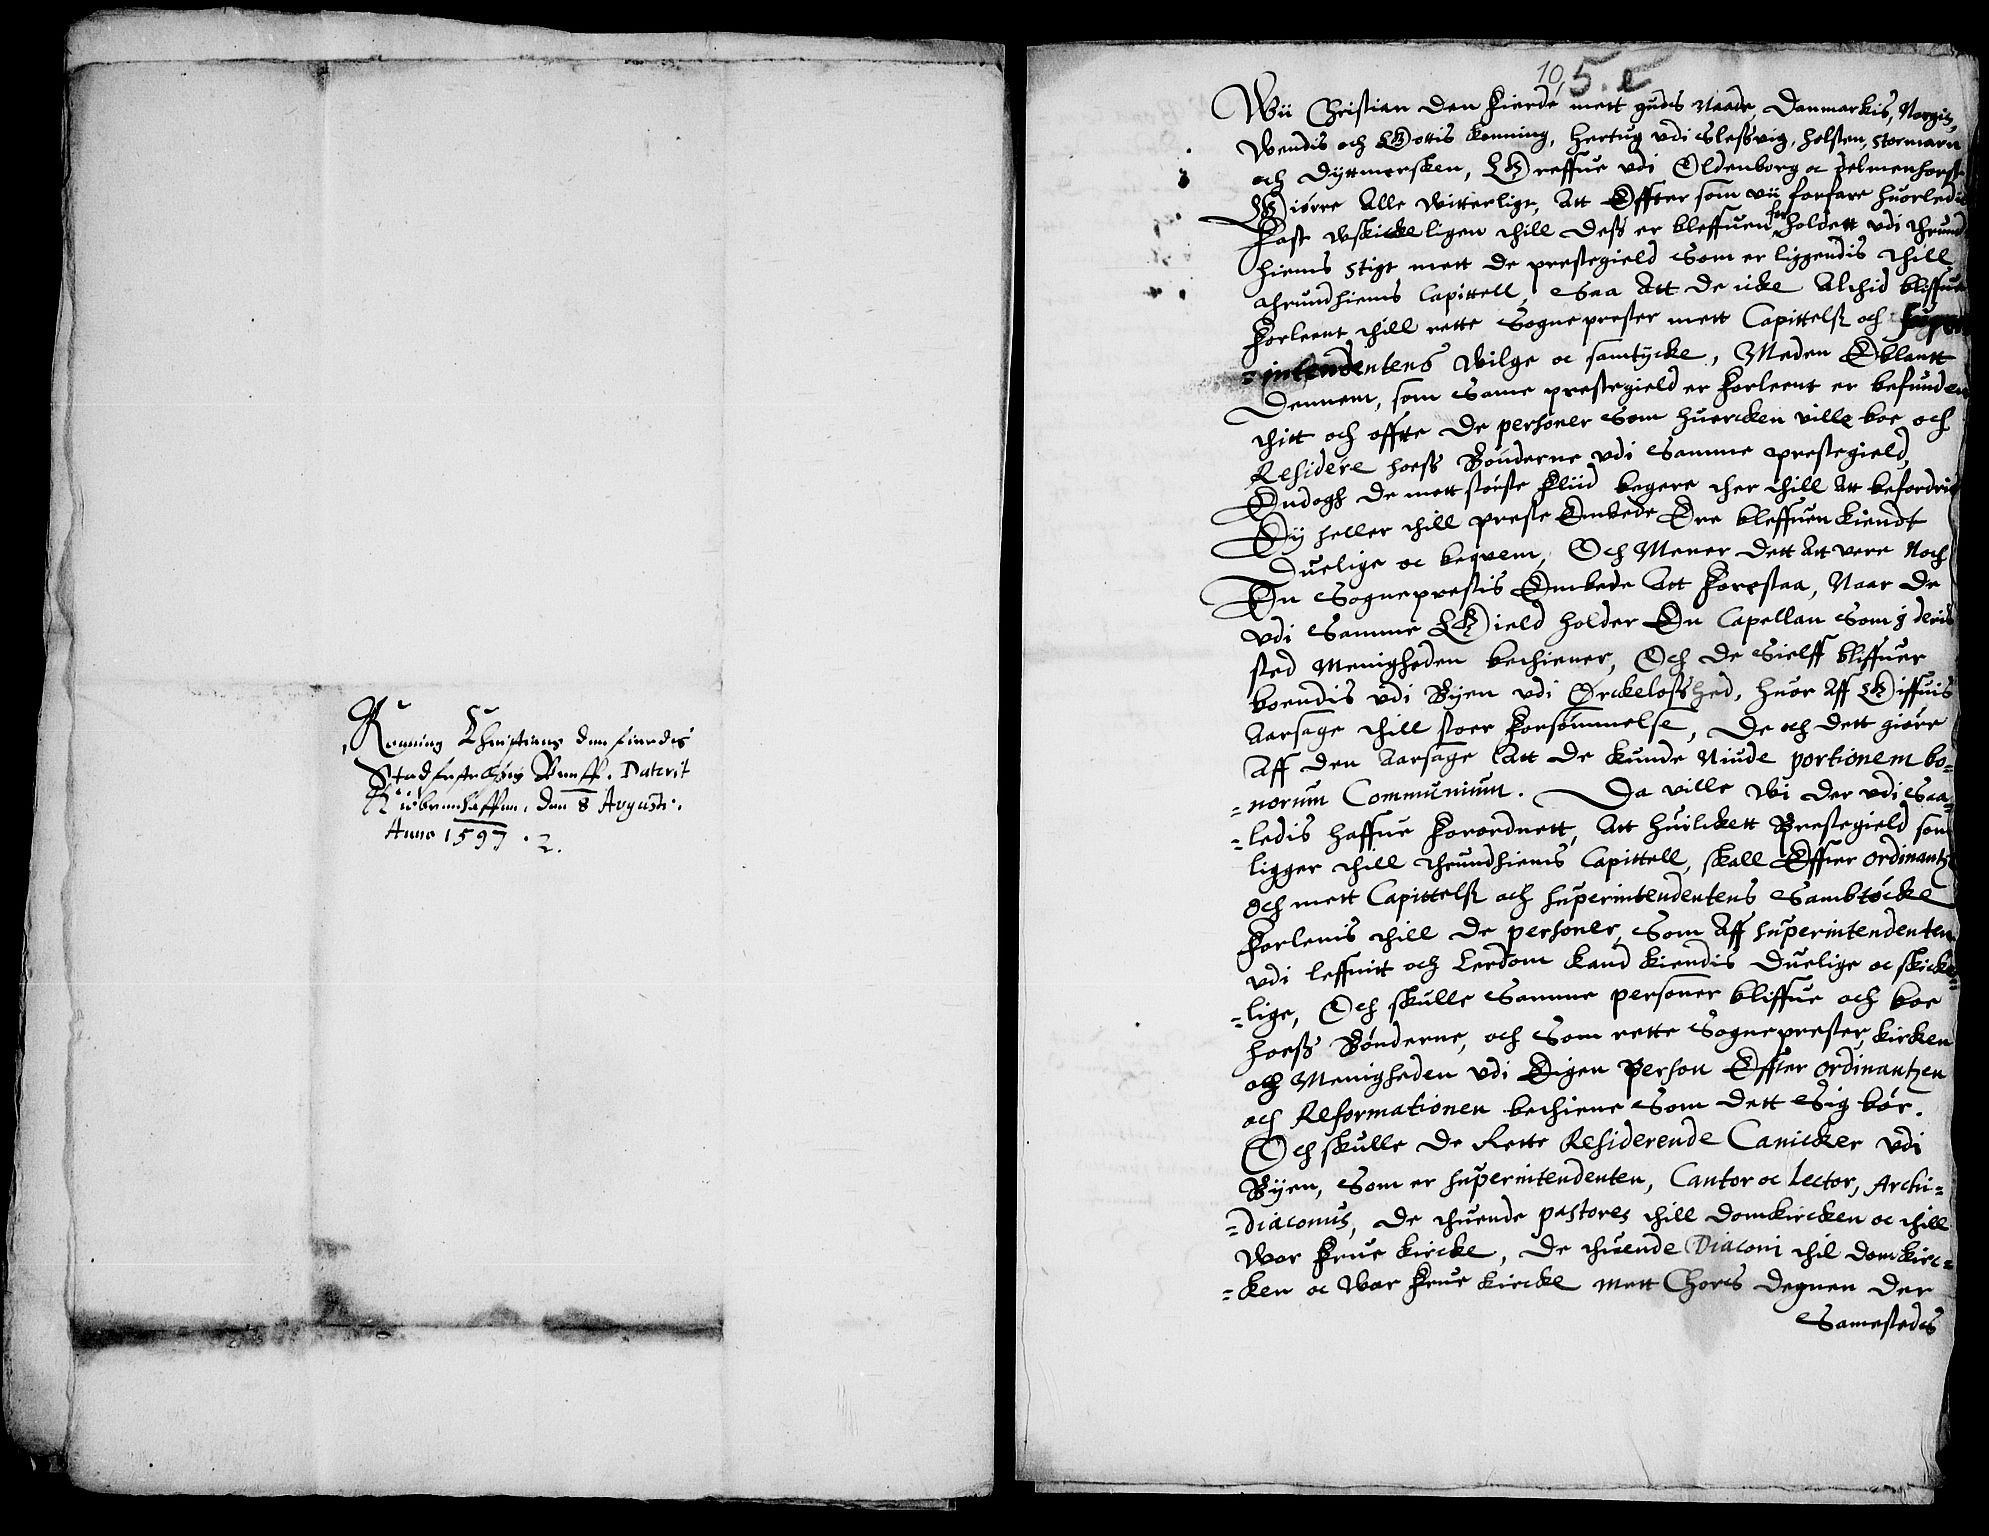 Konning Christians den fierdes
Stadfestelsis Breff. Daterit
Kiøbennhaffnn. den 8 Augusti.
Anno 1597. 2.
10, 5. e
Wii Christian den Fierde mett guds Naade, Danmarkis, Norgis,
Wendis och Gottis konning, Hertug vdi Sleßvig, Holsten, Stormarn
och Dyttmersken, Greffue vdi Oldenborg oc Delmenhorst
Giørre Alle witterligt, Att Effter som vii forfare huorledis
Fast wskickeligen thill deß er bleffuen forholdett vdi Thrund
hiems Stigt mett de prestegield Som er liggendis thill
Thrundhiems Capittell, Saa Att de icke Altid bliffue
Forleent thill rette Sogneprester mett Capittels och Super
=intendentens wilge oc samtycke, Meden Eblantt
Dennem, som Same prestegield er Forleent er befunden
thitt och offtte de personer Som huercken ville boe och
Residere hoeß Bønderne vdi Samme prestegield
Endogh de mett største Fliid begere ther thill Att befordris
Ey heller thill preste Embede Ere bleffuen kiendt
Duelige oc beqvem, Och Mener dett Att vere Noch
En Sogneprestis Embede Att Forestaa, Naar de
vdi Samme Gield holder En Capellan Som i deris
sted Menigheden bethiener, Och de Sielff bliffuer
boendis vdi Byen vdi Ørckeloßhed, Huor Aff Giffuis
Aarsage thill stoer Forsømmelse, De och dett giøre
Aff den Aarsage Att de kunde Niude portionem bo=
=norum Communium. Da ville wi der vdi Saa=
=ledis haffue Forordnett, Att huilckett Prestegield som
ligger thill Thrundhiems Capittell, skall Effter ordinantz
och mett Capittels och Superintendentens Sambtøcke
Forlenis thill de personer, Som Aff Superintendenten
vdi leffnitt och Lerdom kand kiendis Duelige oc skicke=
=lige, Och skulle Samme personer bliffue och boe
hoeß Bønderne, och Som rette Sogneprester, kirken
och Menigheden vdi Eigen Person Effter ordinantzen
och Reformationen bethiene Som dett Sig bør.
Och skulle de Rette Residerende Canicker vdi
Byen, Som er Superintendenten, Cantor oc Lector, Archi=
=diaconus, de thuende pastores thill Domkircken oc thill
Wor Frue kircke, de thuende Diaconi thil domkirc=
=ken oc Wor Frue kircke mett Chors degnen der
Samestedis